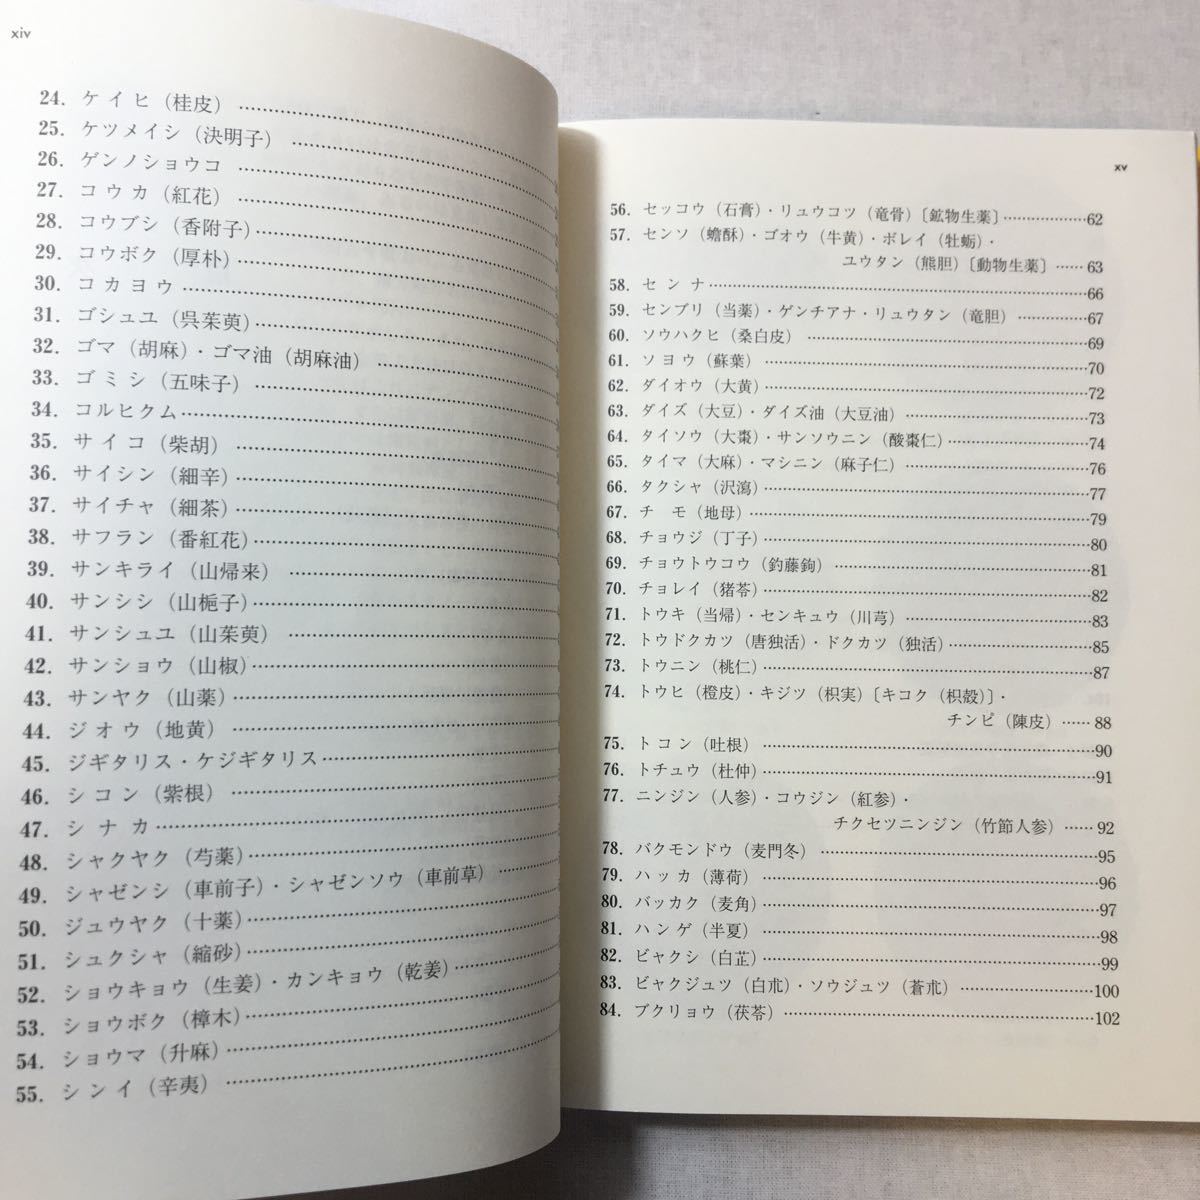 xiv
24. ケイヒ（桂皮）
25. ケツメイシ（決明子）
26. ゲンノショウコ
27. コウカ（紅花）
28. コウブシ（香附子）
29. コウボク（厚朴）
30. コカヨウ
31. ゴシュユ（呉茱萸）
32. ゴマ（胡麻）・ゴマ油（胡麻油）
33. ゴミシ（五味子）
34. コルヒクム
35. サイコ（柴胡）
36. サイシン（細辛）
37. サイチャ（細茶）
38. サフラン（番紅花）
39. サンキライ（山帰来）
40. サンシシ（山梔子）
41. サンシュユ（山茱萸）
42. サンショウ（山椒）
43. サンヤク（山薬）
44. ジオウ（地黄）
45. ジギタリス・ケジギタリス
46. シコン（紫根）
47. シナカ
48. シャクヤク（芍薬）
49. シャゼンシ（車前子）・シャゼンソウ（車前草）
50. ジュウヤク（十薬）
51. シュクシャ（縮砂）
52. ショウキョウ（生姜）・カンキョウ（乾姜）
53. ショウボク（樟木）
54. ショウマ（升麻）
55. シンイ（辛夷）
xv
56. セッコウ（石膏）・リュウコツ（竜骨）〔鉱物生薬〕62
57. センソ（蟾酥）・ゴオウ（牛黄）・ボレイ（牡蛎）・
ユウタン（熊胆）〔動物生薬〕63
58. センナ 66
59. センブリ（当薬）・ゲンチアナ・リュウタン（竜胆）67
60. ソウハクヒ（桑白皮）69
61. ソヨウ（蘇葉）70
62. ダイオウ（大黄）72
63. ダイズ（大豆）・ダイズ油（大豆油）73
64. タイソウ（大棗）・サンソウニン（酸棗仁）74
65. タイマ（大麻）・マシニン（麻子仁）76
66. タクシャ（沢瀉）77
67. チモ（地母）79
68. チョウジ（丁子）80
69. チョウトウコウ（釣藤鉤）81
70. チョレイ（猪苓）82
71. トウキ（当帰）・センキュウ（川芎）83
72. トウドクカツ（唐独活）・ドクカツ（独活）85
73. トウニン（桃仁）87
74. トウヒ（橙皮）・キジツ（枳実）〔キコク（枳殻）〕・
チンピ（陳皮）88
75. トコン（吐根）90
76. トチュウ（杜仲）91
77. ニンジン（人参）・コウジン（紅参）・
チクセツニンジン（竹節人参）92
78. バクモンドウ（麦門冬）95
79. ハッカ（薄荷）96
80. バッカク（麦角）97
81. ハンゲ（半夏）98
82. ビャクシ（白芷）99
83. ビャクジュツ（白朮）・ソウジュツ（蒼朮）100
84. ブクリョウ（茯苓）102